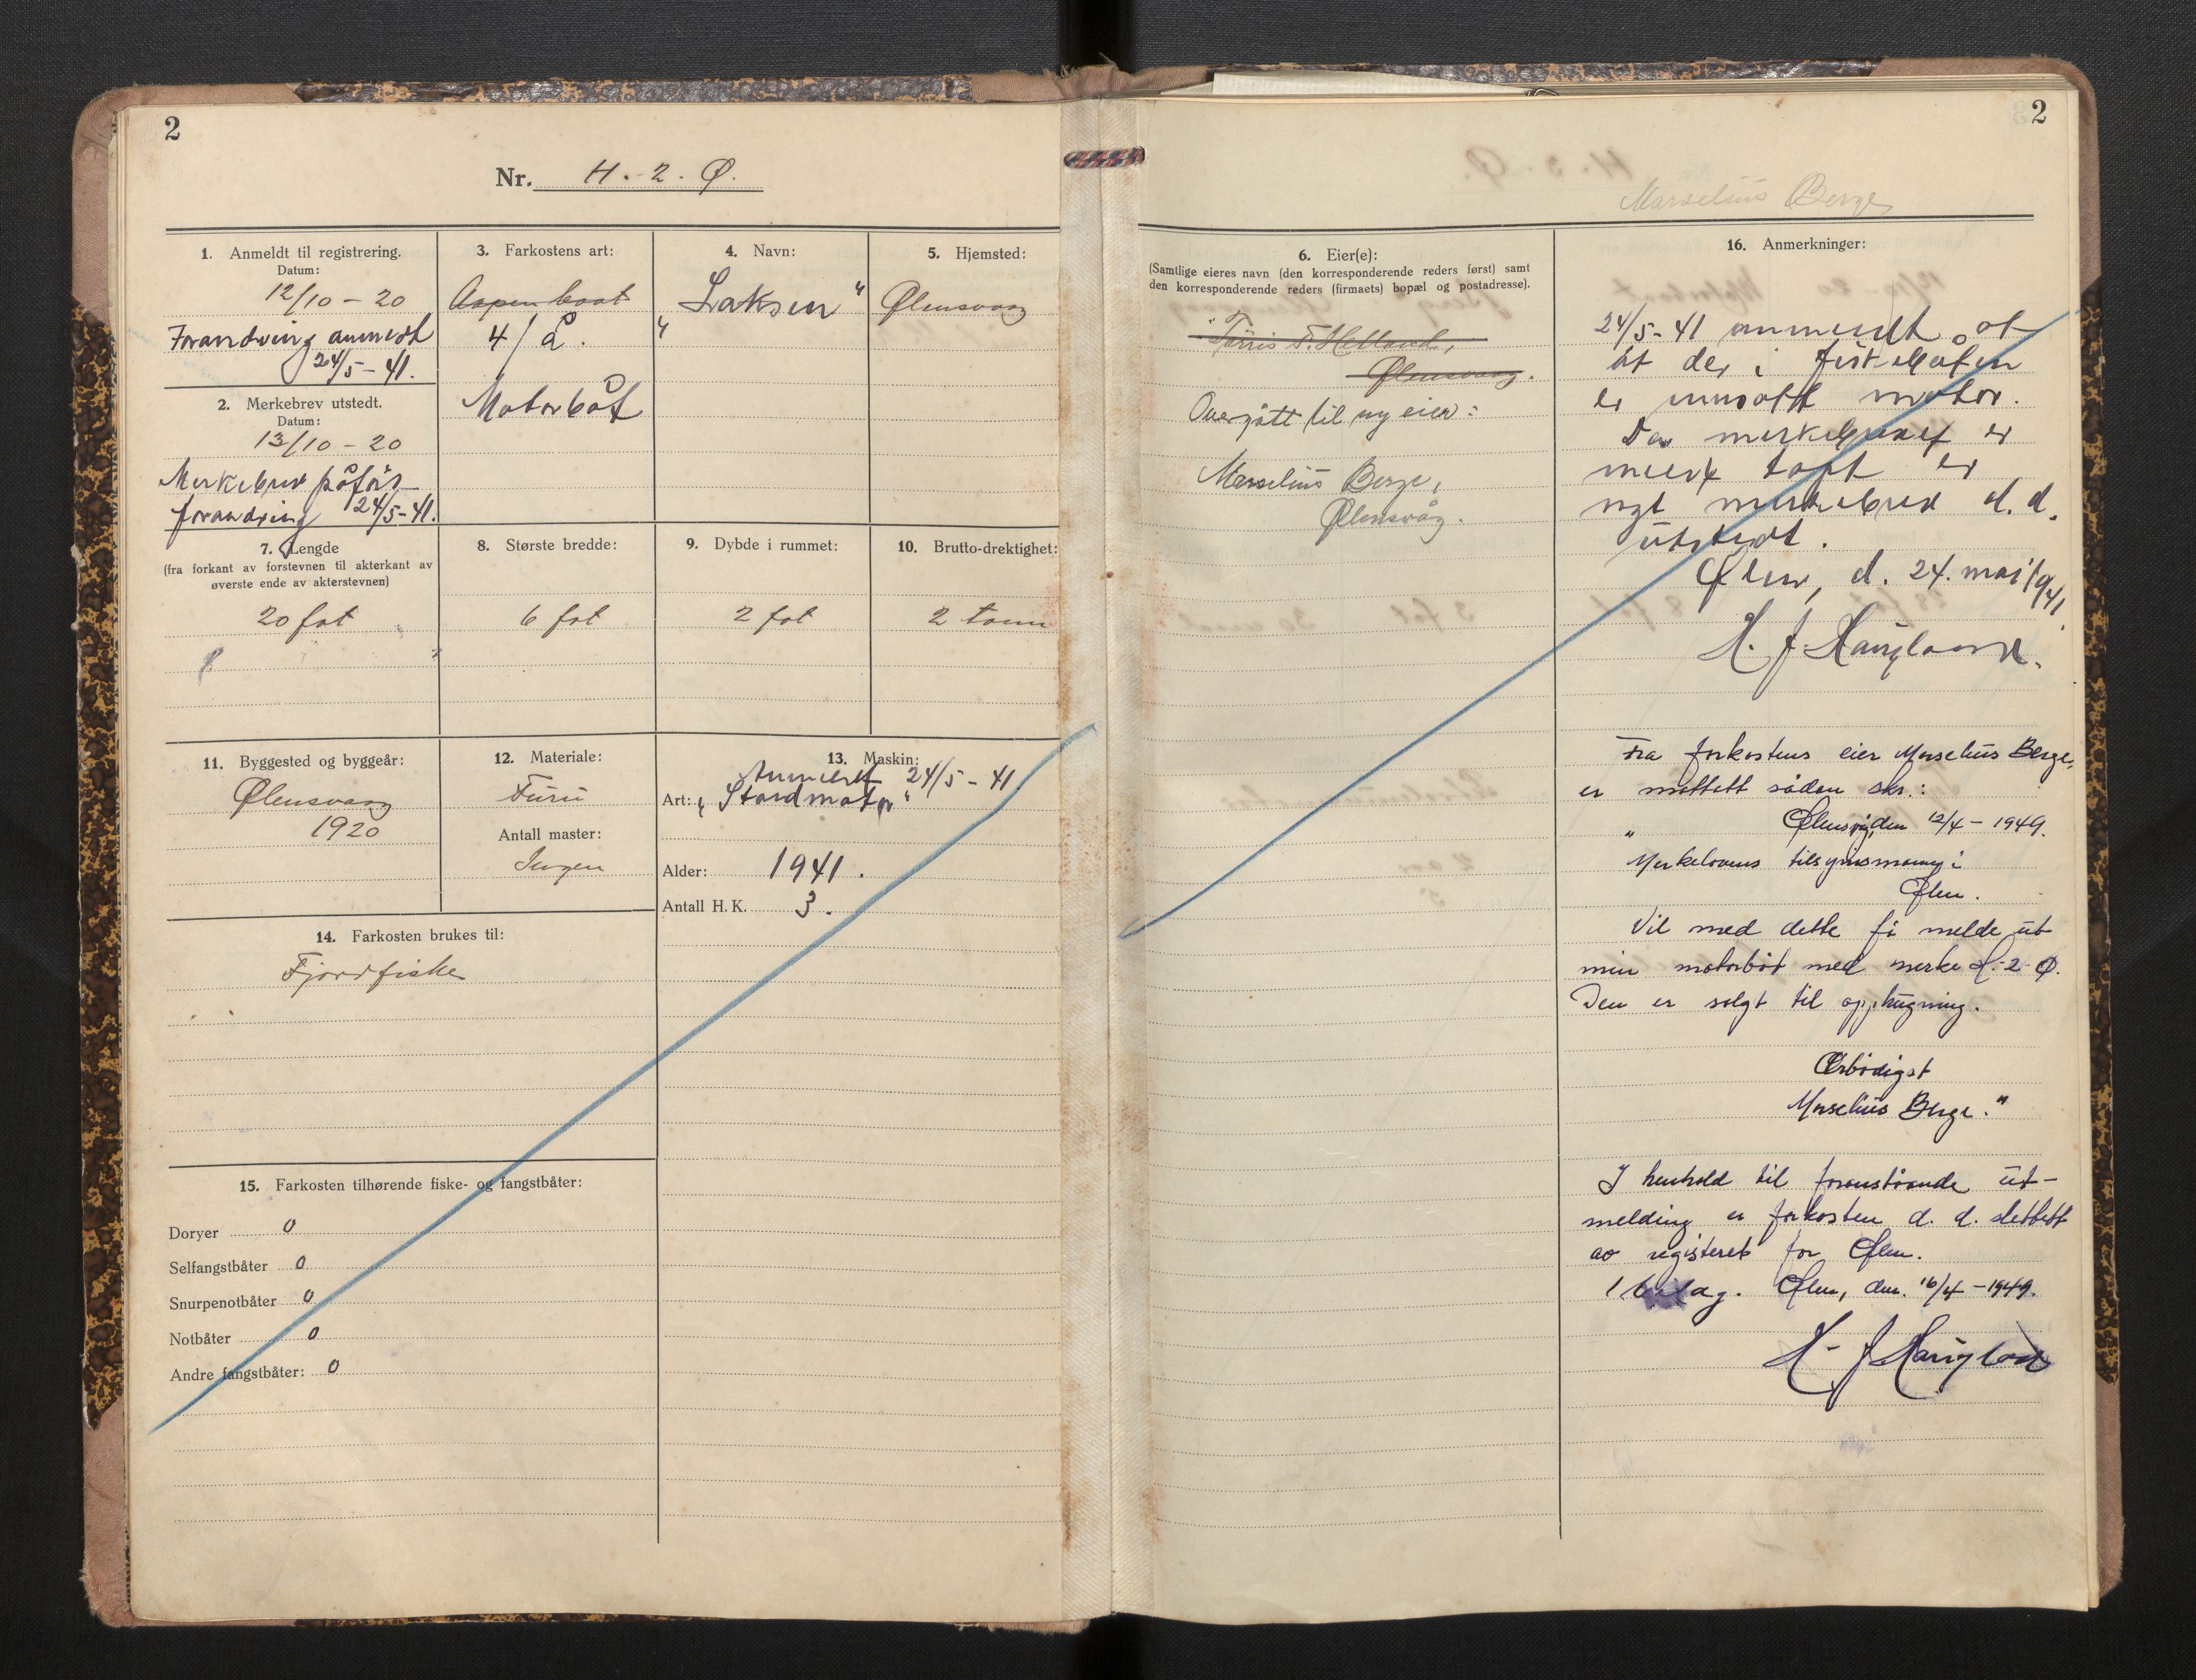 2
Nr. H. - 2. Ø.
1. Anmeldt til registrering.
Datum:
12/10 - 20
Forandring anmeldt
24/5 - 41.
2. Merkebrev utstedt.
Datum:
13/10 - 20
Merkebrev påført
forandring 24/5 - 41.
3. Farkostens art:
Aapen baat
4/å.
Motorbåt
4. Navn:
„Laksen“
5. Hjemsted:
Ølensvaag
7. Lengde
(fra forkant av forstevnen til akterkant av
øverste ende av akterstevnen)
20 fot
8. Største bredde:
6 fot
9. Dybde i rummet:
2 fot
10. Brutto-drektighet:
2 tonn
11. Byggested og byggeår:
Ølensvaag
1920
12. Materiale:
Furu
Antall master:
Ingen
13. Maskin:
Anmeldt 24/5 - 41
Art: „Stordmotor“
Alder: 1941.
Antall H. K. 3.
14. Farkosten brukes til:
Fjordfiske
15. Farkosten tilhørende fiske- og fangstbåter:
Doryer 0
Selfangstbåter 0
Snurpenotbåter 0
Notbåter 0
Andre fangstbåter: 0
2
Marselius Berge
6. Eier(e):
(Samtlige eieres navn (den korresponderende reders først) samt
den korresponderende reders (firmaets) bopæl og postadresse).
Helland,
Ølensvaag.
Overgått til ny eier:
Marselius Berge,
Ølensvåg.
16. Anmerkninger:
24/5 - 41 anmeldt at
at der i fiskebåten
er innsatt motor.
Da merkebrevet er
meldt tapt er
nyt merkebrev d. d.
utstedt.
Ølen, d. 24. mai 1941.
H. J. Haugland.
Fra farkostens eier Marselius Berge,
er mottatt sådan skr.:
„ Ølensvåg, den 12/4 - 1949.
Merkelovens tilsynsmann i
Ølen.
Vil med dette få melde ut
min motorbåt med merke H.-2-Ø.
Den er solgt til opphugning.
Ærbødigst
Marselius Berge.“
I henhold til foranstående ut-
melding er farkosten d. d. slettett
av registeret for Ølen.
1 bilag. Ølen, den 16/4 - 1949.
H. J. Haugland